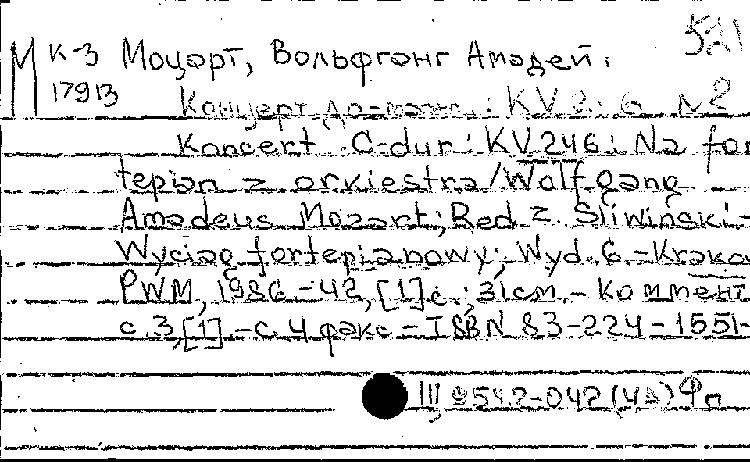 521
М к-3 Моцарт, Вольфганг Амадей.
17913
Концерт До-маж.: KV 246 №2
Koncert C-dur: KV 246: Na for
tepian z orkiestra/Wolfgang
Amadeus Mozart; Red Z. Śliwiński-
Wyciąg fortepianowy; Wyd. 6.-Krako
PWM, 1986.-42, [1] с.; 31см.- Коммент
с.3,[1].-с.4 факс.-ISBN 83-224-1551-
III 9542-042(4А) Фп